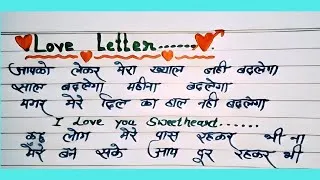 Love Letter......
आपको लेकर मेरा ख्याल नही बदलेगा
साल बदलेगा महीना बदलेगा
मगर मेरे दिल का हाल नही बदलेगा
I Love you Sweetheart......
कुछ लोग मेरे पास रहकर भी ना
मेरे बन सके आप दूर रहकर भी